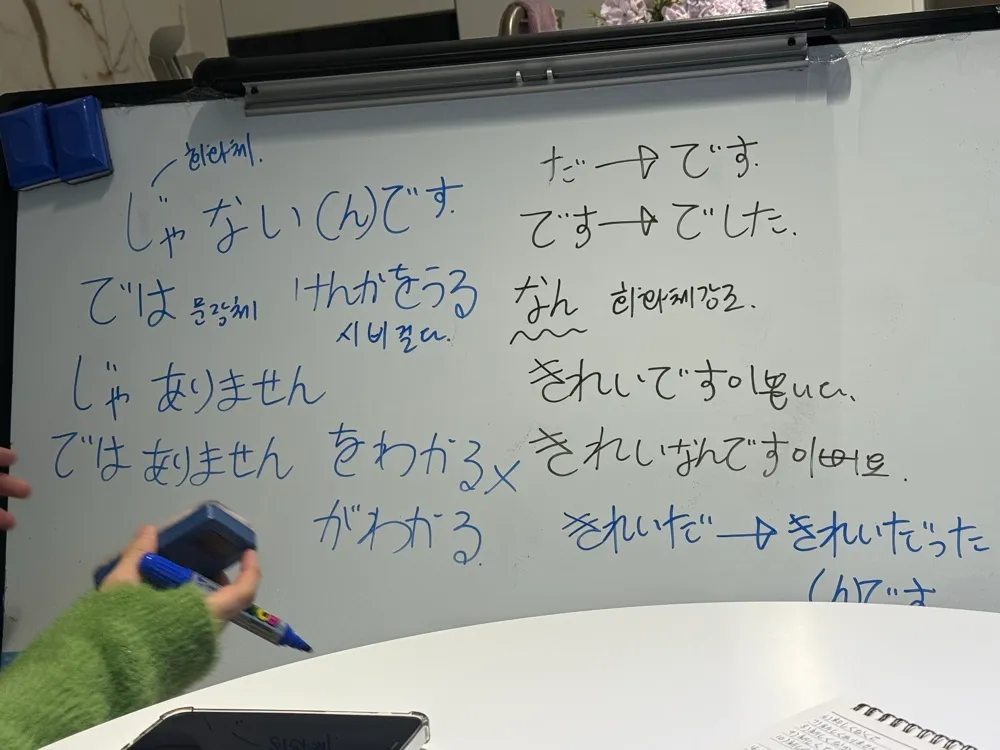 회화체.
じゃない(ん)です.
では 문장체
けんかをうる
시비걸다.
じゃありません
ではありません
をわかる×
がわかる.
だ→です.
です→でした.
なん 회화체강조.
きれいです이쁩니다.
きれいなんです이뻐요.
きれいだ→きれいだった
(ん)です